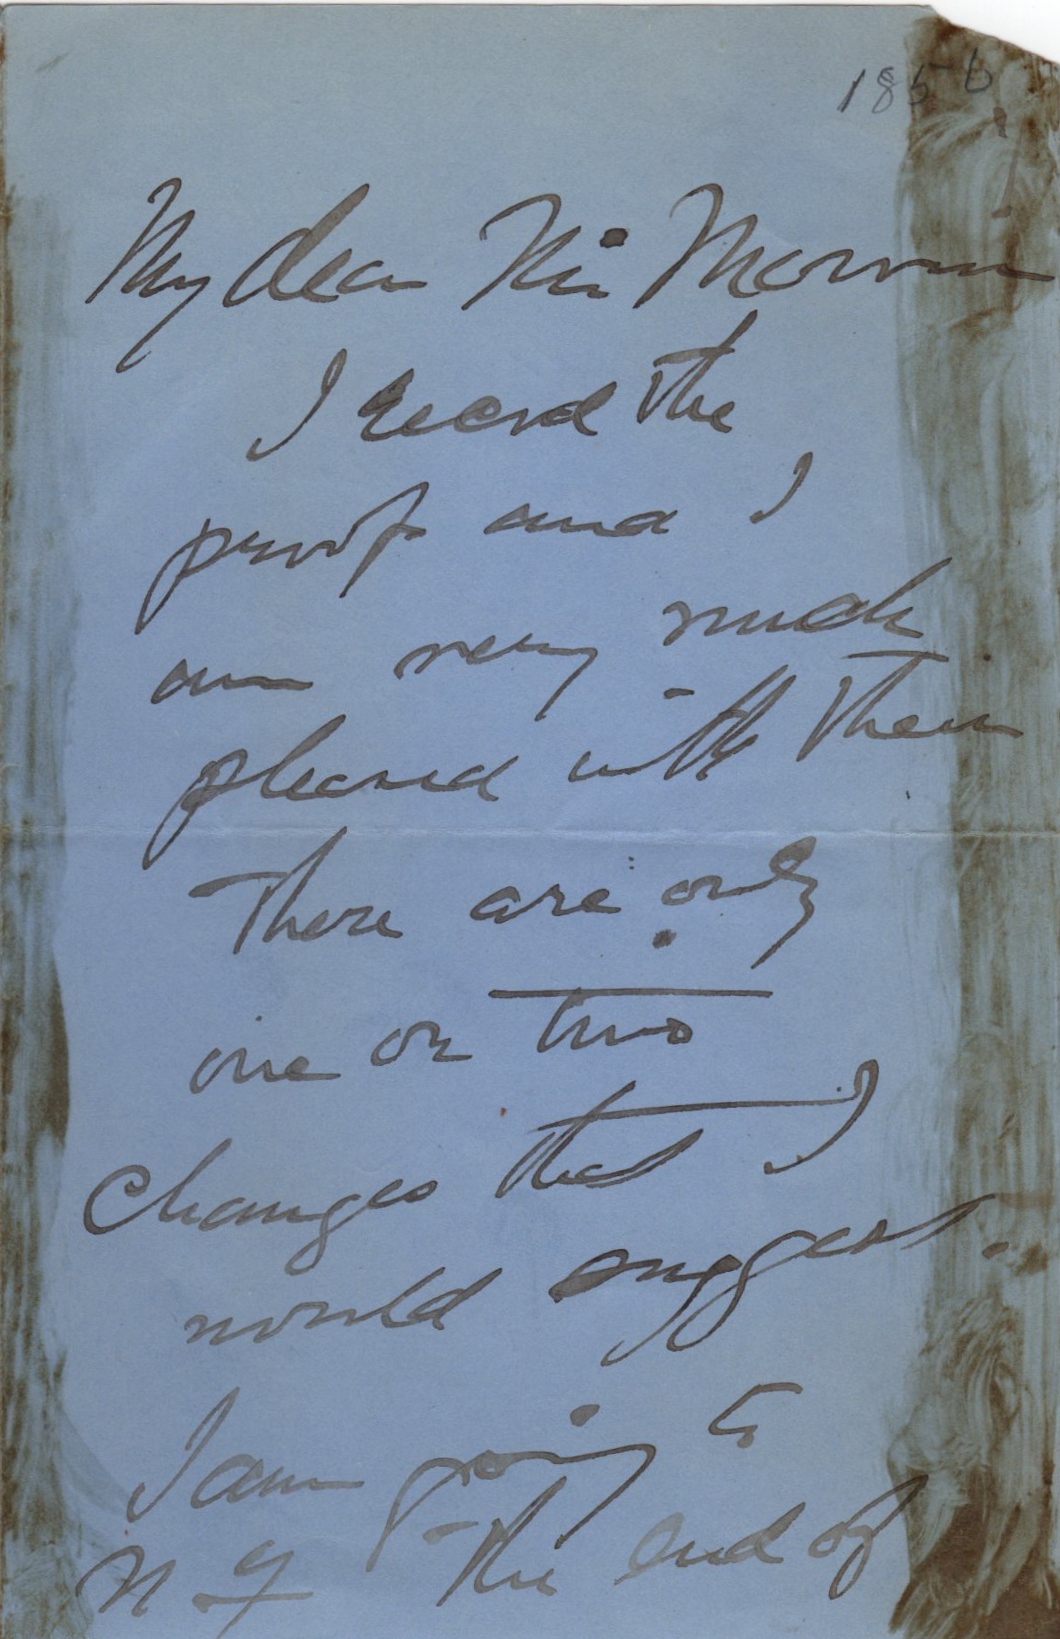 1856
My dear Miss Morvin
I read the
proof and I
am very much
pleased with them
There are only
one or two
changes that I
would suggest.
I am going to
N Y the end of